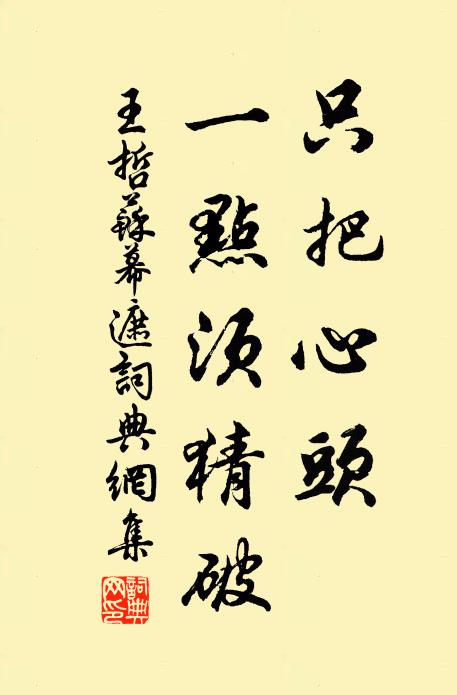 只把心頭
一點須猜破
王哲蘇幕遮詞典網集
詞典
网印